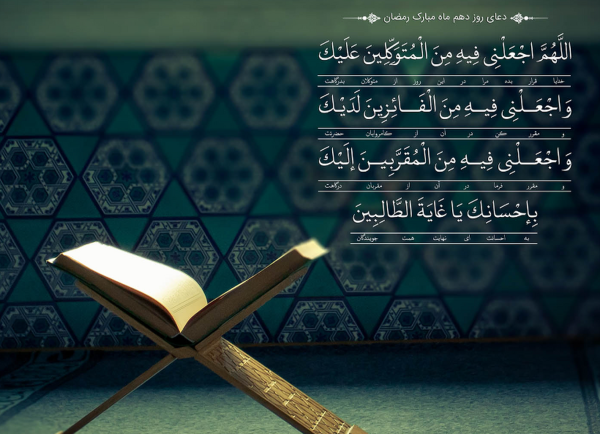 دعای روز دهم ماه مبارک رمضان
اللَّهُمَّ اجْعَلْنِي فِيهِ مِنَ الْمُتَوَكِّلِينَ عَلَيْكَ
خدایا قرار بده مرا در این روز از متوکلان بدرگاهت
وَاجْعَلْنِي فِيهِ مِنَ الْفَائِزِينَ لَدَيْكَ
و مقرر کن در آن از کامروایان حضرتت
وَاجْعَلْنِي فِيهِ مِنَ الْمُقَرَّبِينَ إِلَيْكَ
و مقرر فرما در آن از مقربان درگاهت
بِإِحْسَانِكَ يَا غَايَةَ الطَّالِبِينَ
به احسانت ای نهایت همت جویندگان